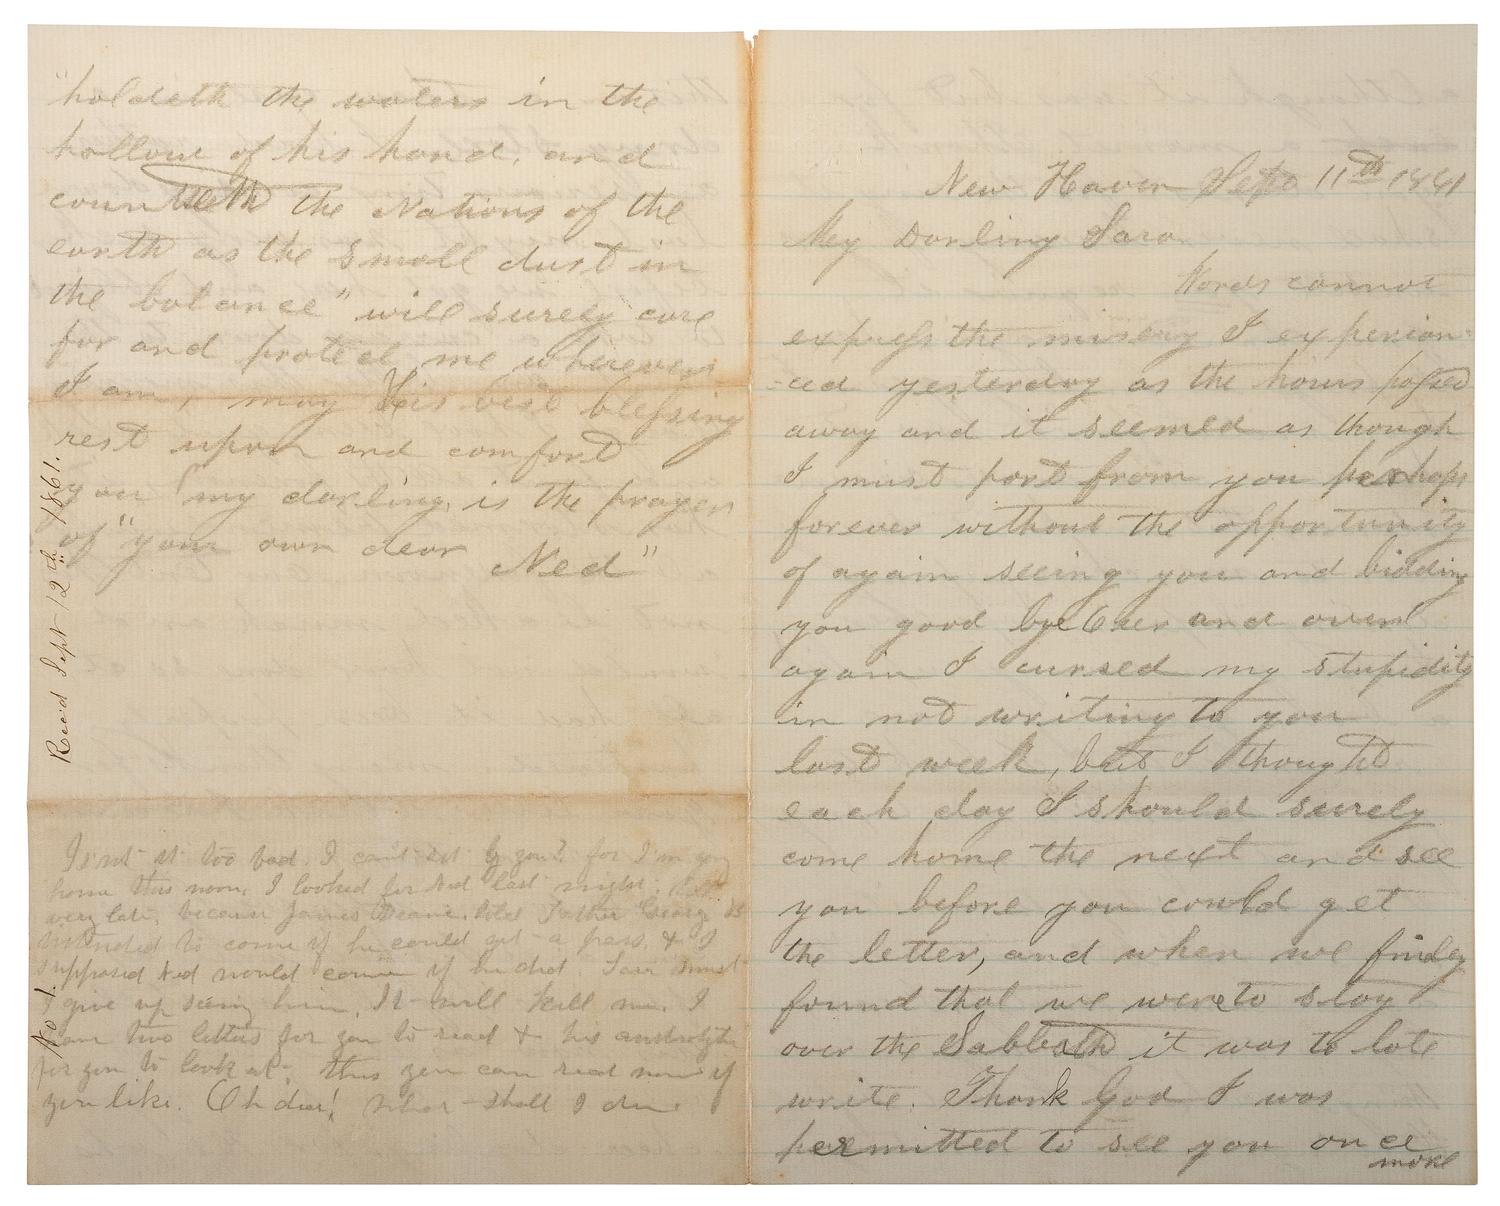 New Haven Sept 11th 1861
My Darling Sara
Words cannot
express the misery I experien-
-ced yesterday as the hours passed
away and it seemed as though
I must part from you perhaps
forever without the opportunity
of again seeing you and bidding
you good bye Over and over
again I cursed my stupidity
in not writing to you
last week, but I thought
each day I should surely
come home the next and see
you before you could get
the letter, and when we finaly
found that we were to stay
over the Sabbath it was to late
write. Thank God I was
permitted to see you once
more
"holdeth the waters in the
hollow of his hand, and
counteth the Nations of the
earth as the small dust in
the balance" will surely care
for and protect me wherever
I am, may His best blessing
rest upon and comfort
you my darling, is the prayer
of "your own dear Ned"
Rec'd Sept 12th 1861.
No 1.
Isn't it too bad. I can't see you? for I'm
home this noon. I looked for Ned last night;
very late, because James told Father George
intended to come if he could get a pass, & I
supposed Ned would come if he did I must
give up seeing him. It will kill me. I
two letters for you to read & his
for you to look at. this you can read now if
you like. Oh dear! what shall I do.